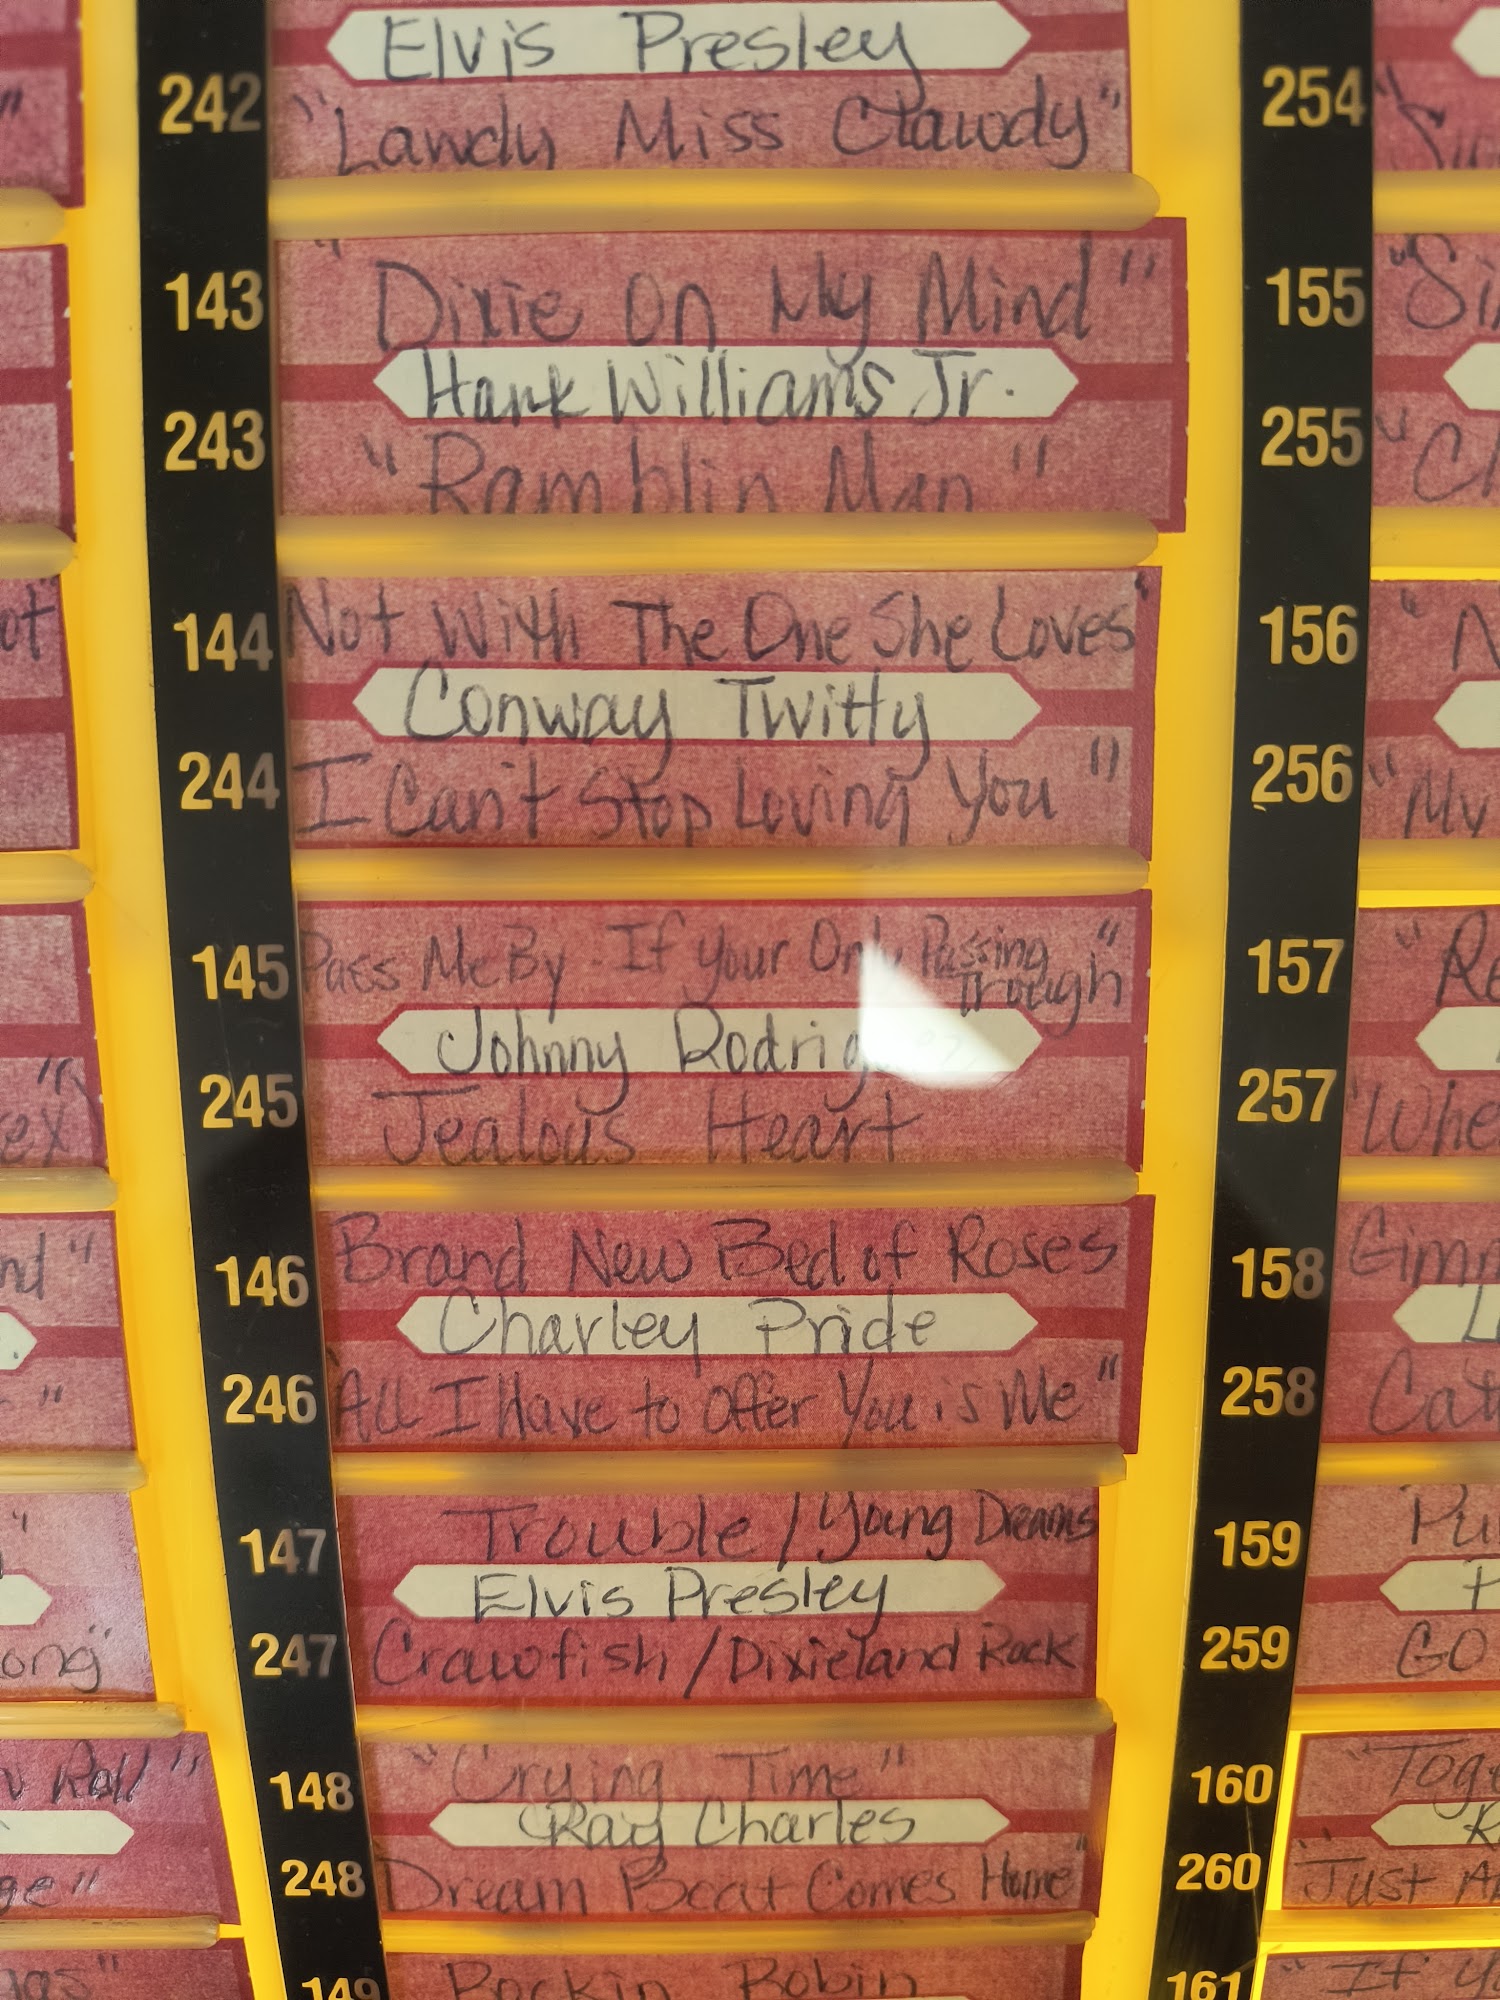 Elvis Presley
242 "Lawdy Miss Clawdy"
143 "Dixie On My Mind"
Hank Williams Jr.
243 "Ramblin Man"
144 Not With The One She Loves"
Conway Twitty
244 I Can't Stop Loving You "
145 Pass Me By - If Your Only Passing Trough "
Johnny Rodrig
245 Jealous Heart
146 Brand New Bed of Roses
Charley Pride
246 All I Have to Offer You is Me "
147 Trouble / Young Dreams
Elvis Presley
247 Crawfish / Dixieland Rock
148 "Crying Time"
Ray Charles
248 Dream Boat Comes Home"
149 Rockin Robin
254
155
255
156
256 "My
157
257
158
258
159
259 GO
160
260 "Just
161 "If
Roll"